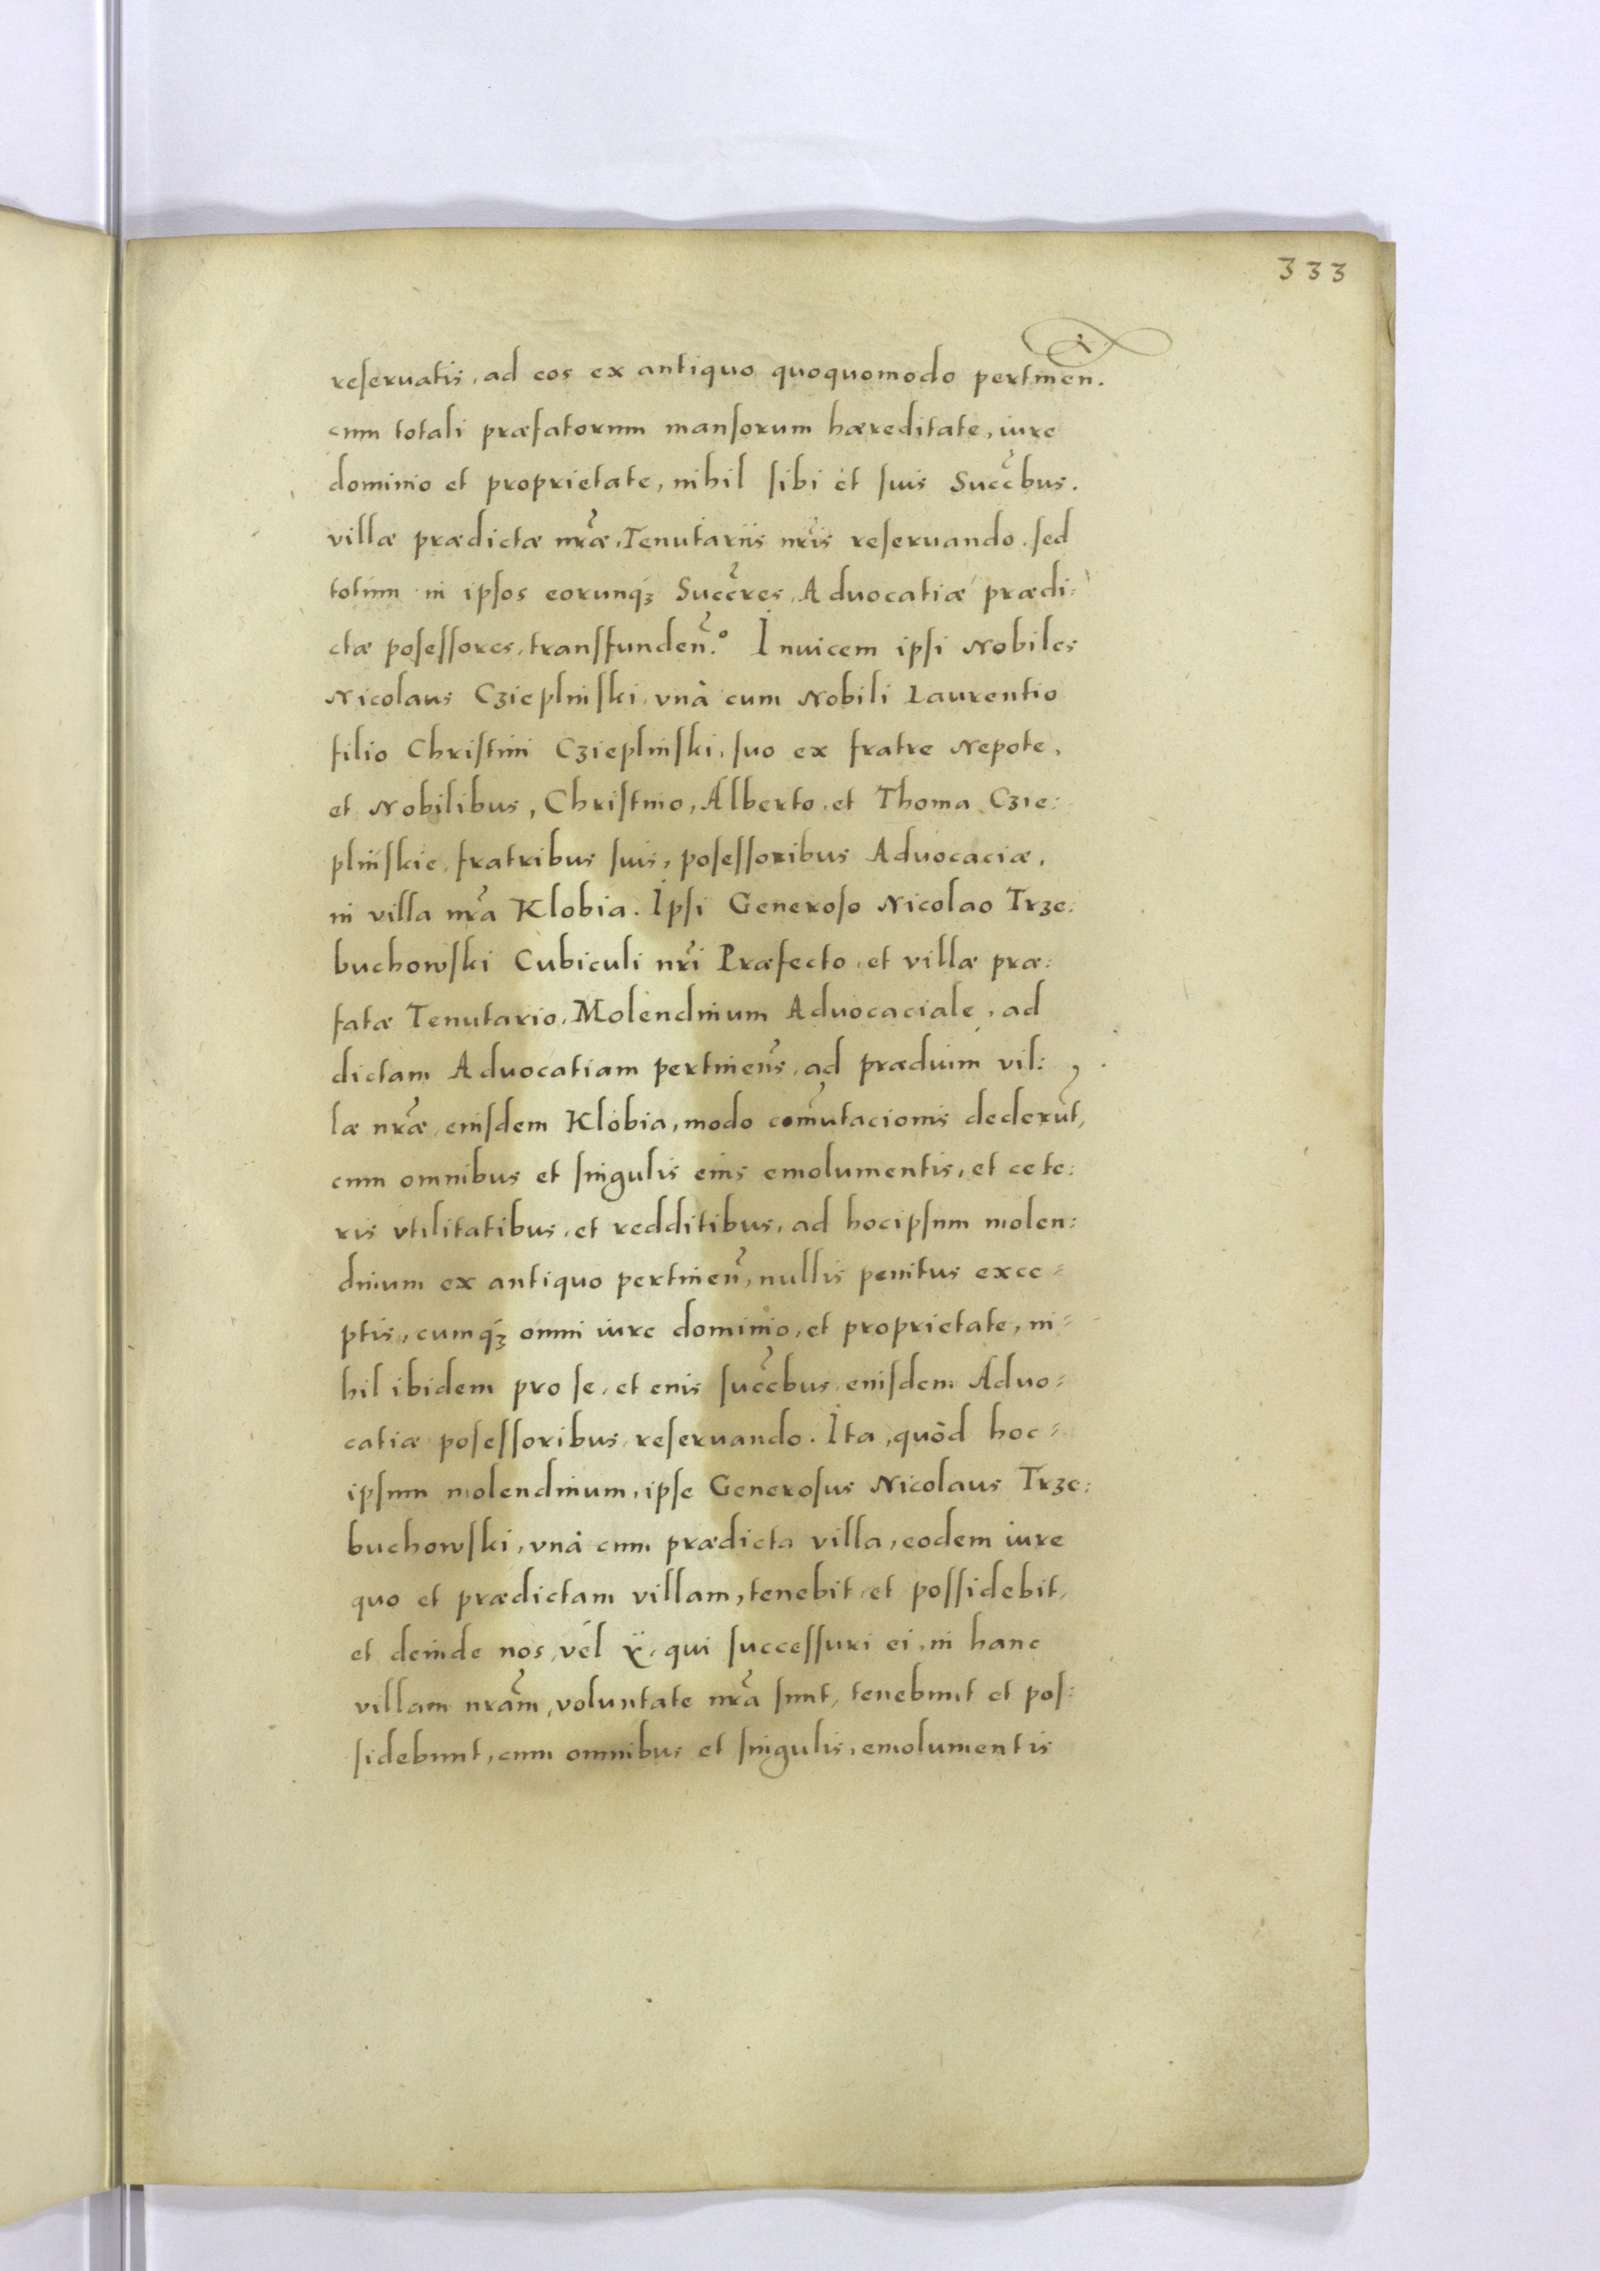 333
reseruatis, ad eos ex antiquo quoquomodo pertinen.
cum totali præfatorum mansorum hæreditate, iure
dominio et proprietate, nihil sibi et suis Succ̃bus.
villæ prædictæ nr̃æ, Tenutariis nr̃is reseruando. sed
totum in ipsos eorunq́ꝫ Succr̃es, Aduocatiæ prædi:
ctæ posessores, transfundeñ. Inuicem ipsi Nobiles
Nicolaus Cziepliński, vnà cum Nobili Laurentio
filio Christini Cziepliński, suo ex fratre Nepote,
et Nobilibus, Christino, Alberto, et Thoma Czie:
plińskie, fratribus suis, posessoribus Aduocaciæ,
in villa nr̃a Klobia. Ipsi Generoso Nicolao Trze:
buchowski Cubiculi nr̃i Præfecto, et villæ præ:
fatæ Tenutario, Molendinum Aduocaciale, ad
dictam Aduocatiam pertineñs, ad præduim vil:
læ nr̃æ, eiusdem Klobia, modo com̃utacionis dederũt,
cum omnibus et singulis eius emolumentis, et cete:
ris vtilitatibus, et redditibus, ad hocipsum molen:
dinum ex antiquo pertineñ, nullis penitus exce:
ptis, cumq́ꝫ omni iure dominio, et proprietate, ni:
hil ibidem pro se, et eius succ̃bus, eiusdem Aduo:
catiæ posessoribus, reseruando. Ita, quòd hoc:
ipsum molendinum, ipse Generosus Nicolaus Trze:
buchowski, vnà cum prædicta villa, eodem iure
quo et prædictam villam, tenebit, et possidebit,
et deinde nos, vel ÿ, qui successuri ei, in hanc
villam nr̃am, voluntate nr̃a sunt, tenebunt et pos:
sidebunt, cum omnibus et singulis, emolumentis